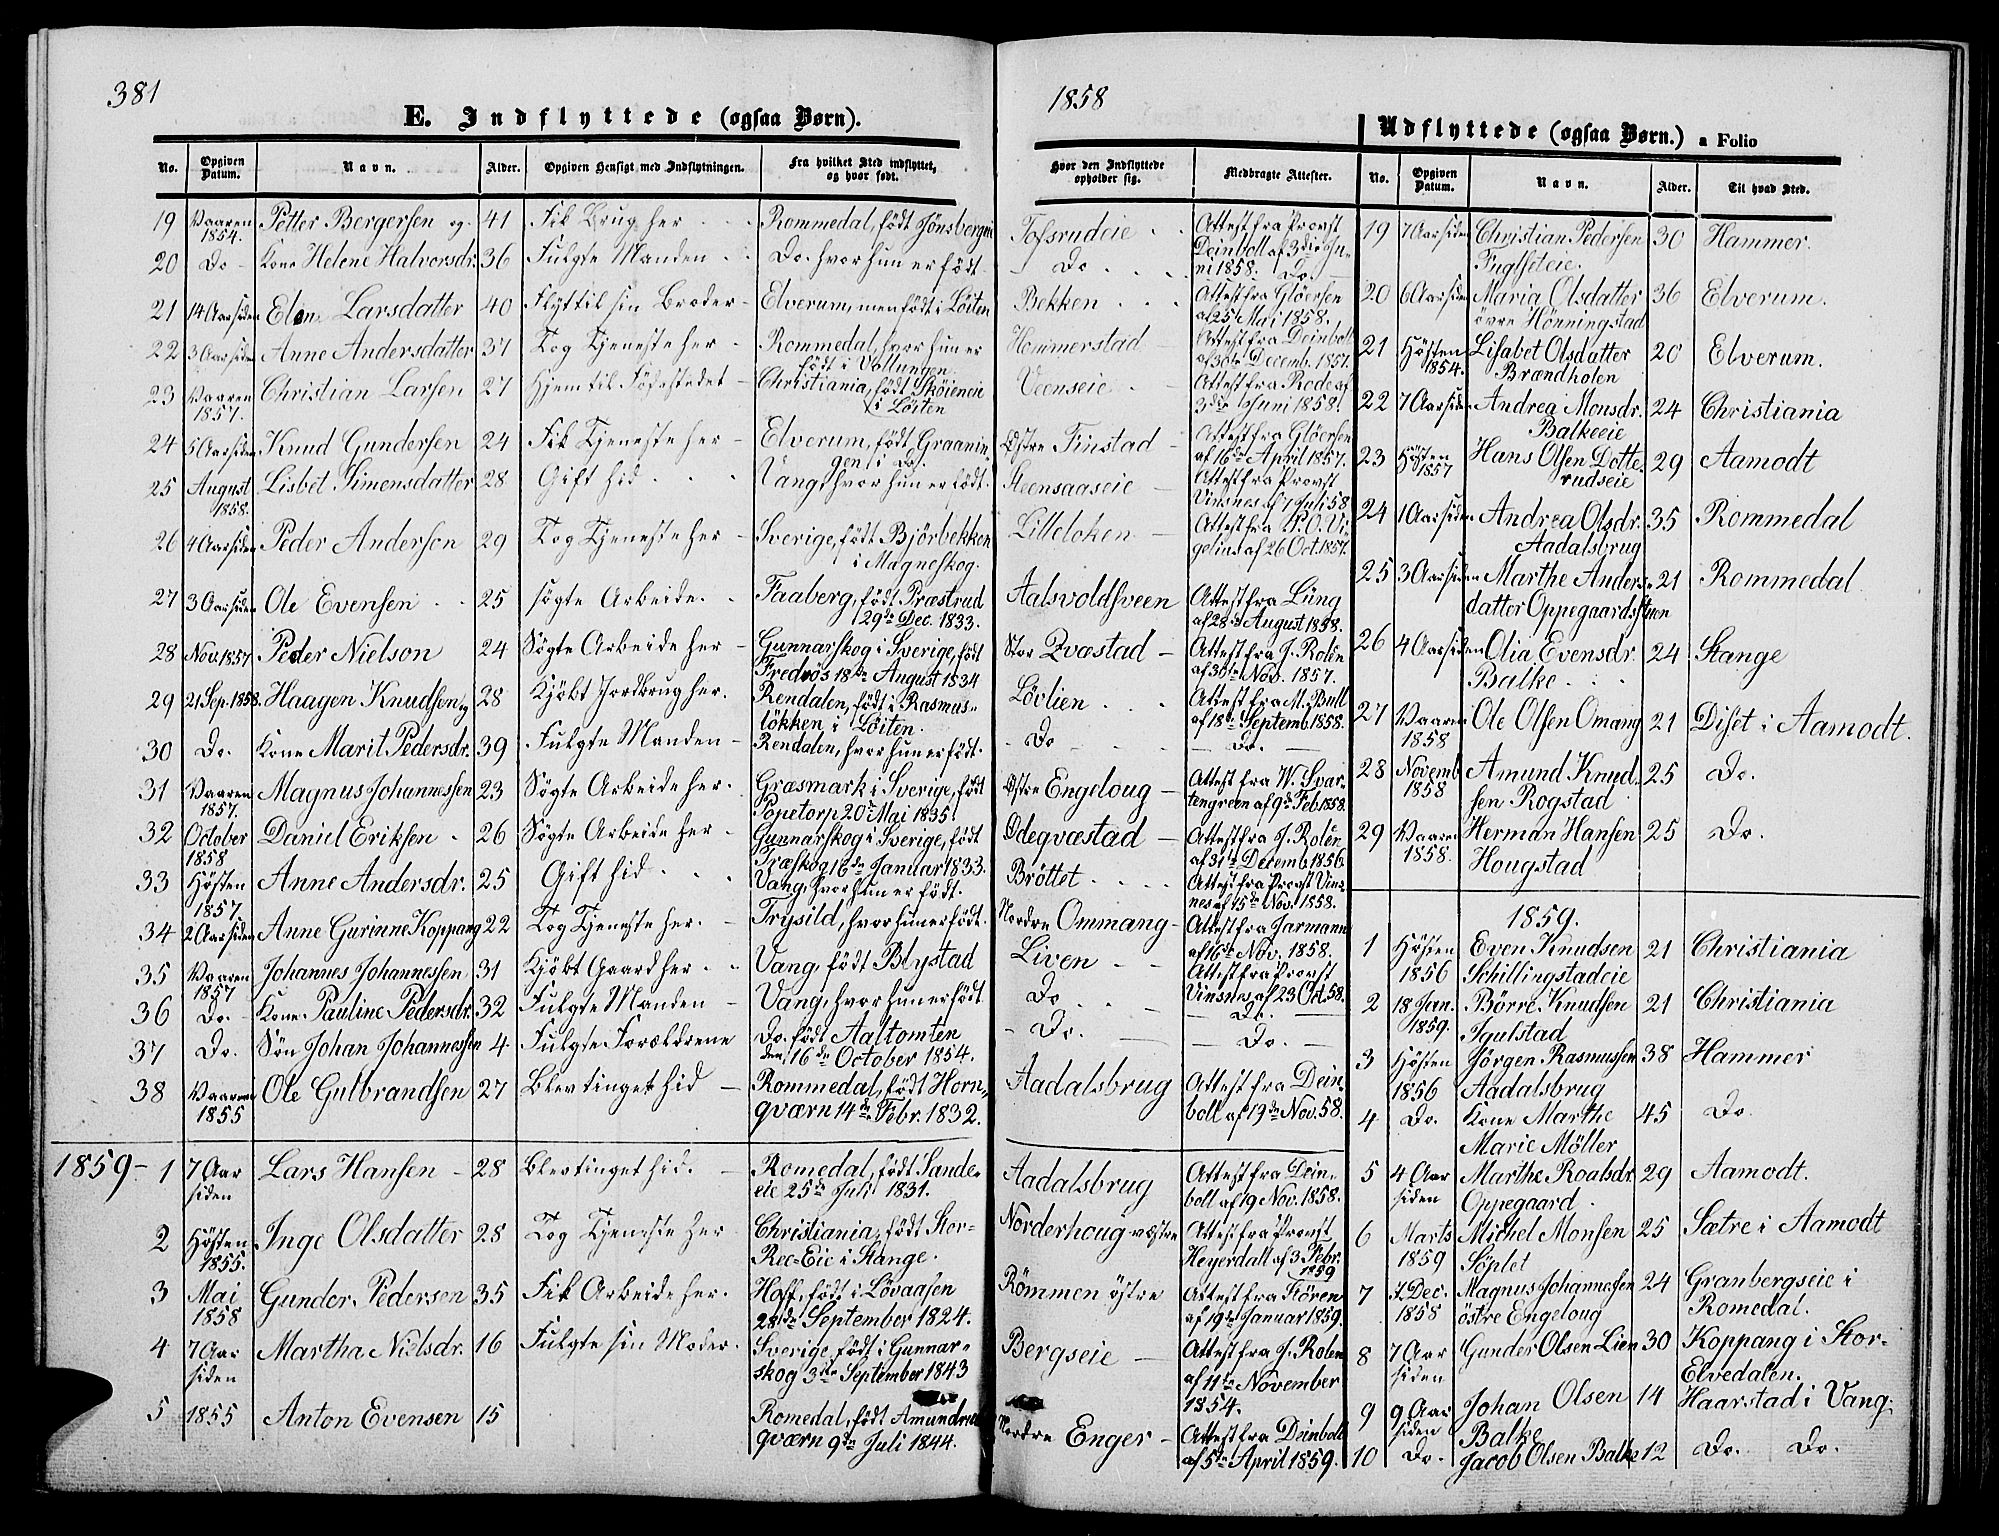 381
E. Indflyttede (ogsaa Børn).
No. Opgiven Datum. Navn. Alder. Opgiven Hensigt med Indflytningen. Fra hvilket Sted indflyttet, og hvor født.
19 Vaaren 1854. Petter Bergersen og 41 Fik Brug her Rommedal, født Jönsbergeie
20 Do Kone Helene Halvorsdr. 36 Fulgte Manden Do. hvor hun er født
21 14 Aar siden Elene Larsdatter 40 Flyt til sin Broder Elverum, men født i Löiten
22 3 Aar siden Anne Andersdatter 37 Tog Tjeneste her Rommedal, hvor hun er født i Vollungen.
23 Vaaren 1857. Christian Larsen 27 Hjem til Födestedet Christiania, født Sköieneie i Löiten
24 5 Aar siden Knud Gundersen 24 Fik Tjeneste her Elverum, født Graaningen i Do.
25 August 1858. Lisbet Simensdatter 28 Gift hid Vang, hvor hun er født.
26 4 Aar siden Peder Andersen 29 Tog Tjeneste her Sverige, født Björbekken i Magneskog.
27 3 Aar siden Ole Evensen 25 søgte Arbeide. Faaberg, født Præstrud 29de Dec. 1833.
28 Nov. 1857. Peder Nielson 24 Søgte Arbeide her Gunnarskog i Sverige, født Fredrös 18de August 1834
29 21 Sep. 1858. Haagen Knudsen og 28 Kjöbt Jordbrug her. Rendalen, født i Rasmuslökken i Löiten.
30 Do. Kone Marit Pedersdr. 39 Fulgte Manden Rendalen, hvor hun er født.
31 Vaaren 1857. Magnus Johannessen 23 Søgte Arbeide her. Græsmark i Sverige, født Popetorp 20de Mai 1835
32 October 1858 Daniel Eriksen 26 Søgte Arbeide her Gunnarskog i Sverige, født Træskog 16de Januar 1833.
33 Hösten 1857. Anne Andersdr. 25 Gift hid Vang, hvor hun er født.
34 2 Aar siden Anne Gurinne Koppang 22 Tog Tjeneste her. Trysild, hvor hun er født.
35 Vaaren 1857 Johannes Johannessen 31 Kjöbt Gaard her. Vang, født Blystad
36 Do. Kone Pauline Pedersdr. 32 Fulgte Manden Vang, hvor hun er født
37 Do. Søn Johan Johannessen 4 Fulgte Forældrene Do. født Aaltomten den 16de October 1854.
38 Vaaren 1855 Ole Gulbrandsen 27 Blev tinget hid Rommedal, født Hornqværn 14de Febr. 1832.
1859 - 1 7 Aar siden Lars Hansen 28 Blev tinget hid. Romedal, født Sandeeie 25de Juli 1831.
2 Hösten 1855. Inge Olsdatter 28 Tog Tjeneste her Christiania, født Stor-Ree-Eie i Stange.
3 Mai 1858 Gunder Pedersen 35 Fik Arbeide her. Hoff, født i Lövaasen 28de September 1824.
4 7 Aar siden Martha Nielsdr. 16 Fulgte sin Moder. Sverige, født i Gunnarskog 3die September 1843
5 1855 Anton Evensen 15 Romedal, født Amundrudqværn 9de Juli 1844.
1858
Hvor den Indflyttede opholder sig. Medbragte Attester.
Tofsrudeie Attest fra Provst Deinboll af 3die Juni 1858.
Do Do.
Bekken Attest fra Glöersen af 25 Mai 1858.
Hommerstad Attest fra Deinboll af 30te Decemb. 1857.
Veenseie Attest fra Rode af 3die Juni 1858.
Østre Finstad Attest fra Glöersen af 16de April 1857.
Steensaaseie Attest fra Provst Vinsnes af 7 Juli 58
Lilleloken Attest fra P. O. Vigelius af 26 Oct. 1857.
Aalsvoldsveen Attest fra Lüng af 28de August 1858.
Stor Qvæstad Attest fra J. Rolén af 30te Nov. 1857.
Lövlien Attest fra M. Bull af 18de Septemb. 1858.
Do Do.
Østre Engeloug Attest fra W. Svartengreen af 9de Feb. 1858.
Ödegvæstad Attest fra J. Rolén af 31te Decemb. 1856.
Bröttet Attest fra Provst Vinsnes af 15de Nov. 1858.
Nordre Ommang Attest fra Jarmann af 16de Nov. 1858.
Liven Attest fra Provst Vinsnes af 23 Oct. 58.
Do Do.
Do. Do.
Aadalsbrug Attest fra Deinboll af 19de Nov. 58.
Aadalsbrug Attest fra Deinboll af 19 Nov. 1858.
Norderhoug vestre Attest fra Provst Heyerdall af 3 Febr. 1859
Römmen östre Attest fra Flören af 19de Januar 1859.
Bergseie Attest fra J. Rolen af 11te November 1854.
Nordre Enger Attest fra Deinboll af 5te April 1859.
Udflyttede (ogsaa Børn.) a Folio
No. Opgiven Datum. Navn. Alder. Til hvad Sted.
19 7 Aar siden Christian Pedersen Fuglseteie. 30 Hammer.
20 6 Aar siden Maria Olsdatter övre Hörningstad 36 Elverum.
21 Hösten 1854. Lisabet Olsdatter Brændholen 20 Elverum.
22 7 Aar siden Andrea Monsdr. Balkeeie 24 Christiania
23 Hösten 1857 Hans Olsen Dotterudseie 29 Aamodt
24 1 Aar siden Andrea Olsdr. Aadalsbrug 35 Rommedal
25 3 Aar siden Marthe Andersdatter Oppegaardsstuen 21 Rommedal
26 4 Aar siden Olia Evensdr. Balke 24 Stange
27 Vaaren 1858 Ole Olsen Omang 21 Diset i Aamodt.
28 Novemb 1858 Amund Knudsen Rogstad 25 Do.
29 Vaaren 1858. Herman Hansen Hougstad 25 Do.
1859.
1 Hösten 1856 Even Knudsen Schillingstadeie 21 Christiania
2 18 Jan. 1859. Börre Knudsen Igulstad 21 Christiania
3 Hösten 1856 Jörgen Rasmussen Aadalsbrug 38 Hammer
4 Do. Kone Marthe Marie Möller 45 Do.
5 4 Aar siden Marthe Roalsdr. Oppegaard 29 Aamodt.
6 Marts 1859 Michel Monsen Söplet 25 Sætre i Aamodt
7 7 Dec. 1858 Magnus Johannessen östre Engeloug 24 Granbergseie i Romedal.
8 7 Aar siden Gunder Olsen Lien 30 Koppang i Stor-Elvedalen.
9 9 Aar siden Johan Olsen Balke 14 Haarstad i Vang.
10 Do. Jacob Olsen Balke 12 Do. Do.